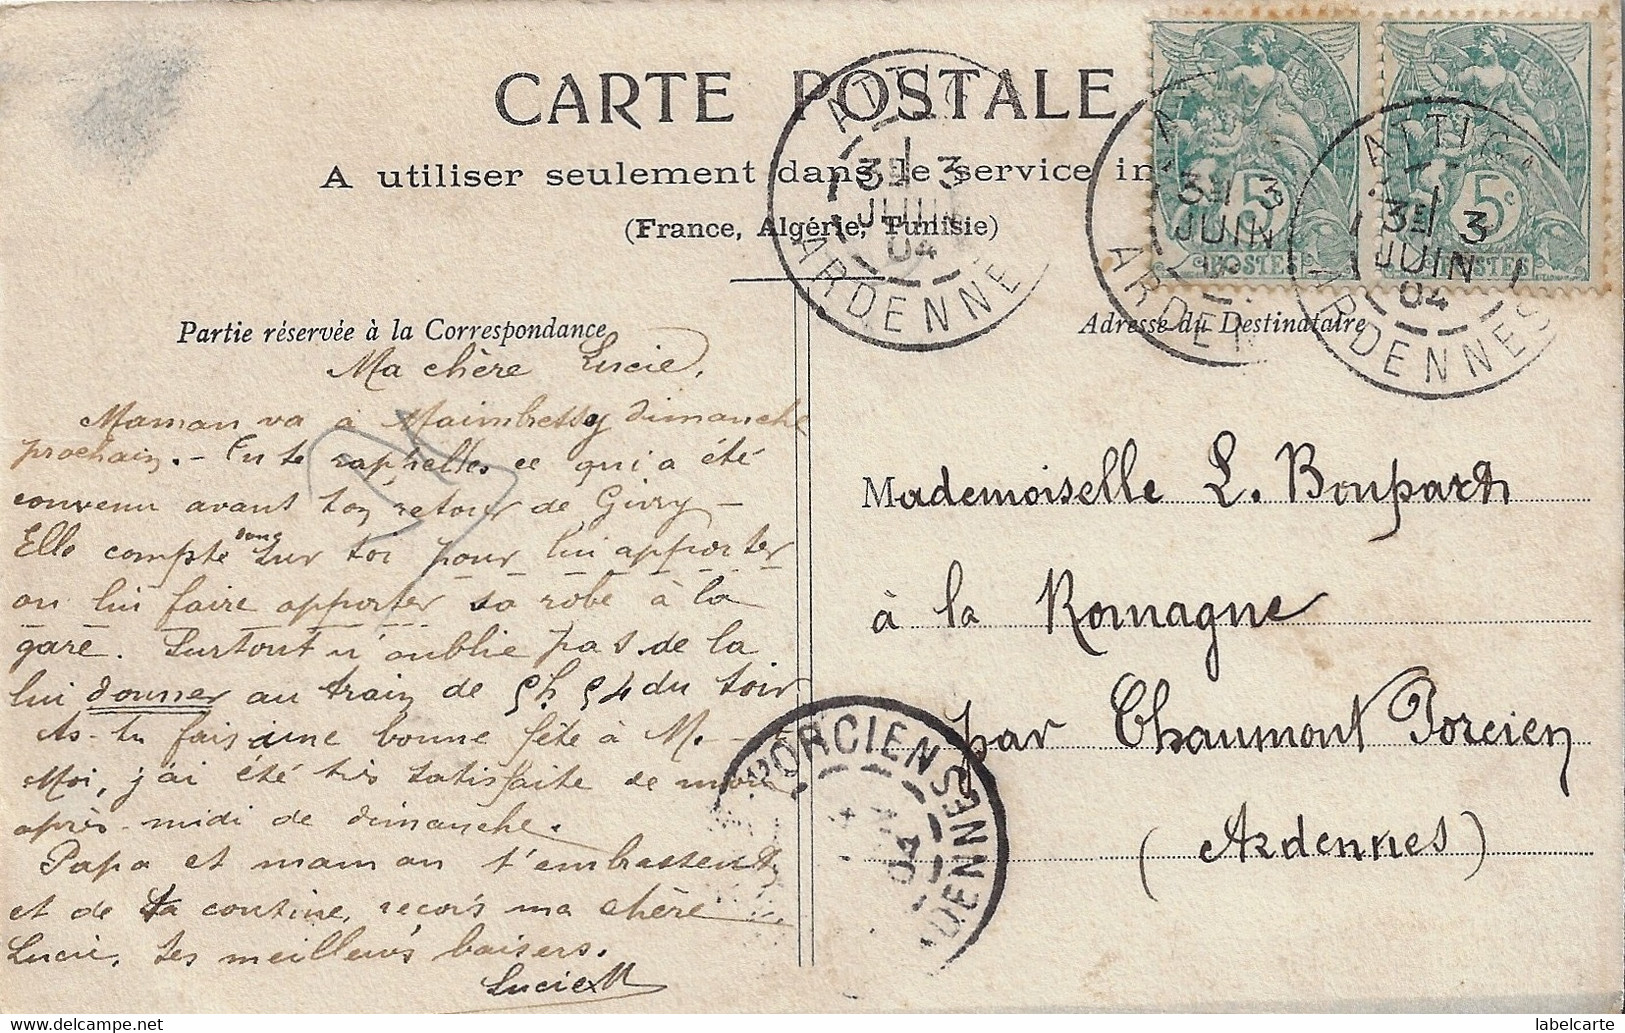 CARTE POSTALE
A utiliser seulement dans le service in
(France, Algérie, Tunisie)
Partie réservée à la Correspondance
Ma chère Lucie,
Maman va à Maimbressy dimanche
prochain. - Tu te rappelles ce qui a été
convenu avant ton retour de Givry -
Elle compte donc sur toi pour lui apporter
ou lui faire apporter sa robe à la
gare. Surtout n'oublie pas de la
lui donner au train de 5h 54 du soir
As-tu fais une bonne fête à M. -
Moi, j'ai été très satisfaite de mon
après-midi de dimanche.
Papa et maman t'embrassent
et de ta cousine, reçois ma chère
Lucie, ses meilleurs baisers.
Lucie M
Adresse du Destinataire
Mademoiselle L. Boupart
à la Romagne
par Chaumont Porcien
(Ardennes)
ATTIG
3E 3
JUIN
04
ARDENNE
3E 3
JUIN
ARDEN
ATTIG
3E 3
JUIN
04
ARDENNES
5
POSTES
5c
POSTES
PORCIEN
04
ARDENNES
labelcarte